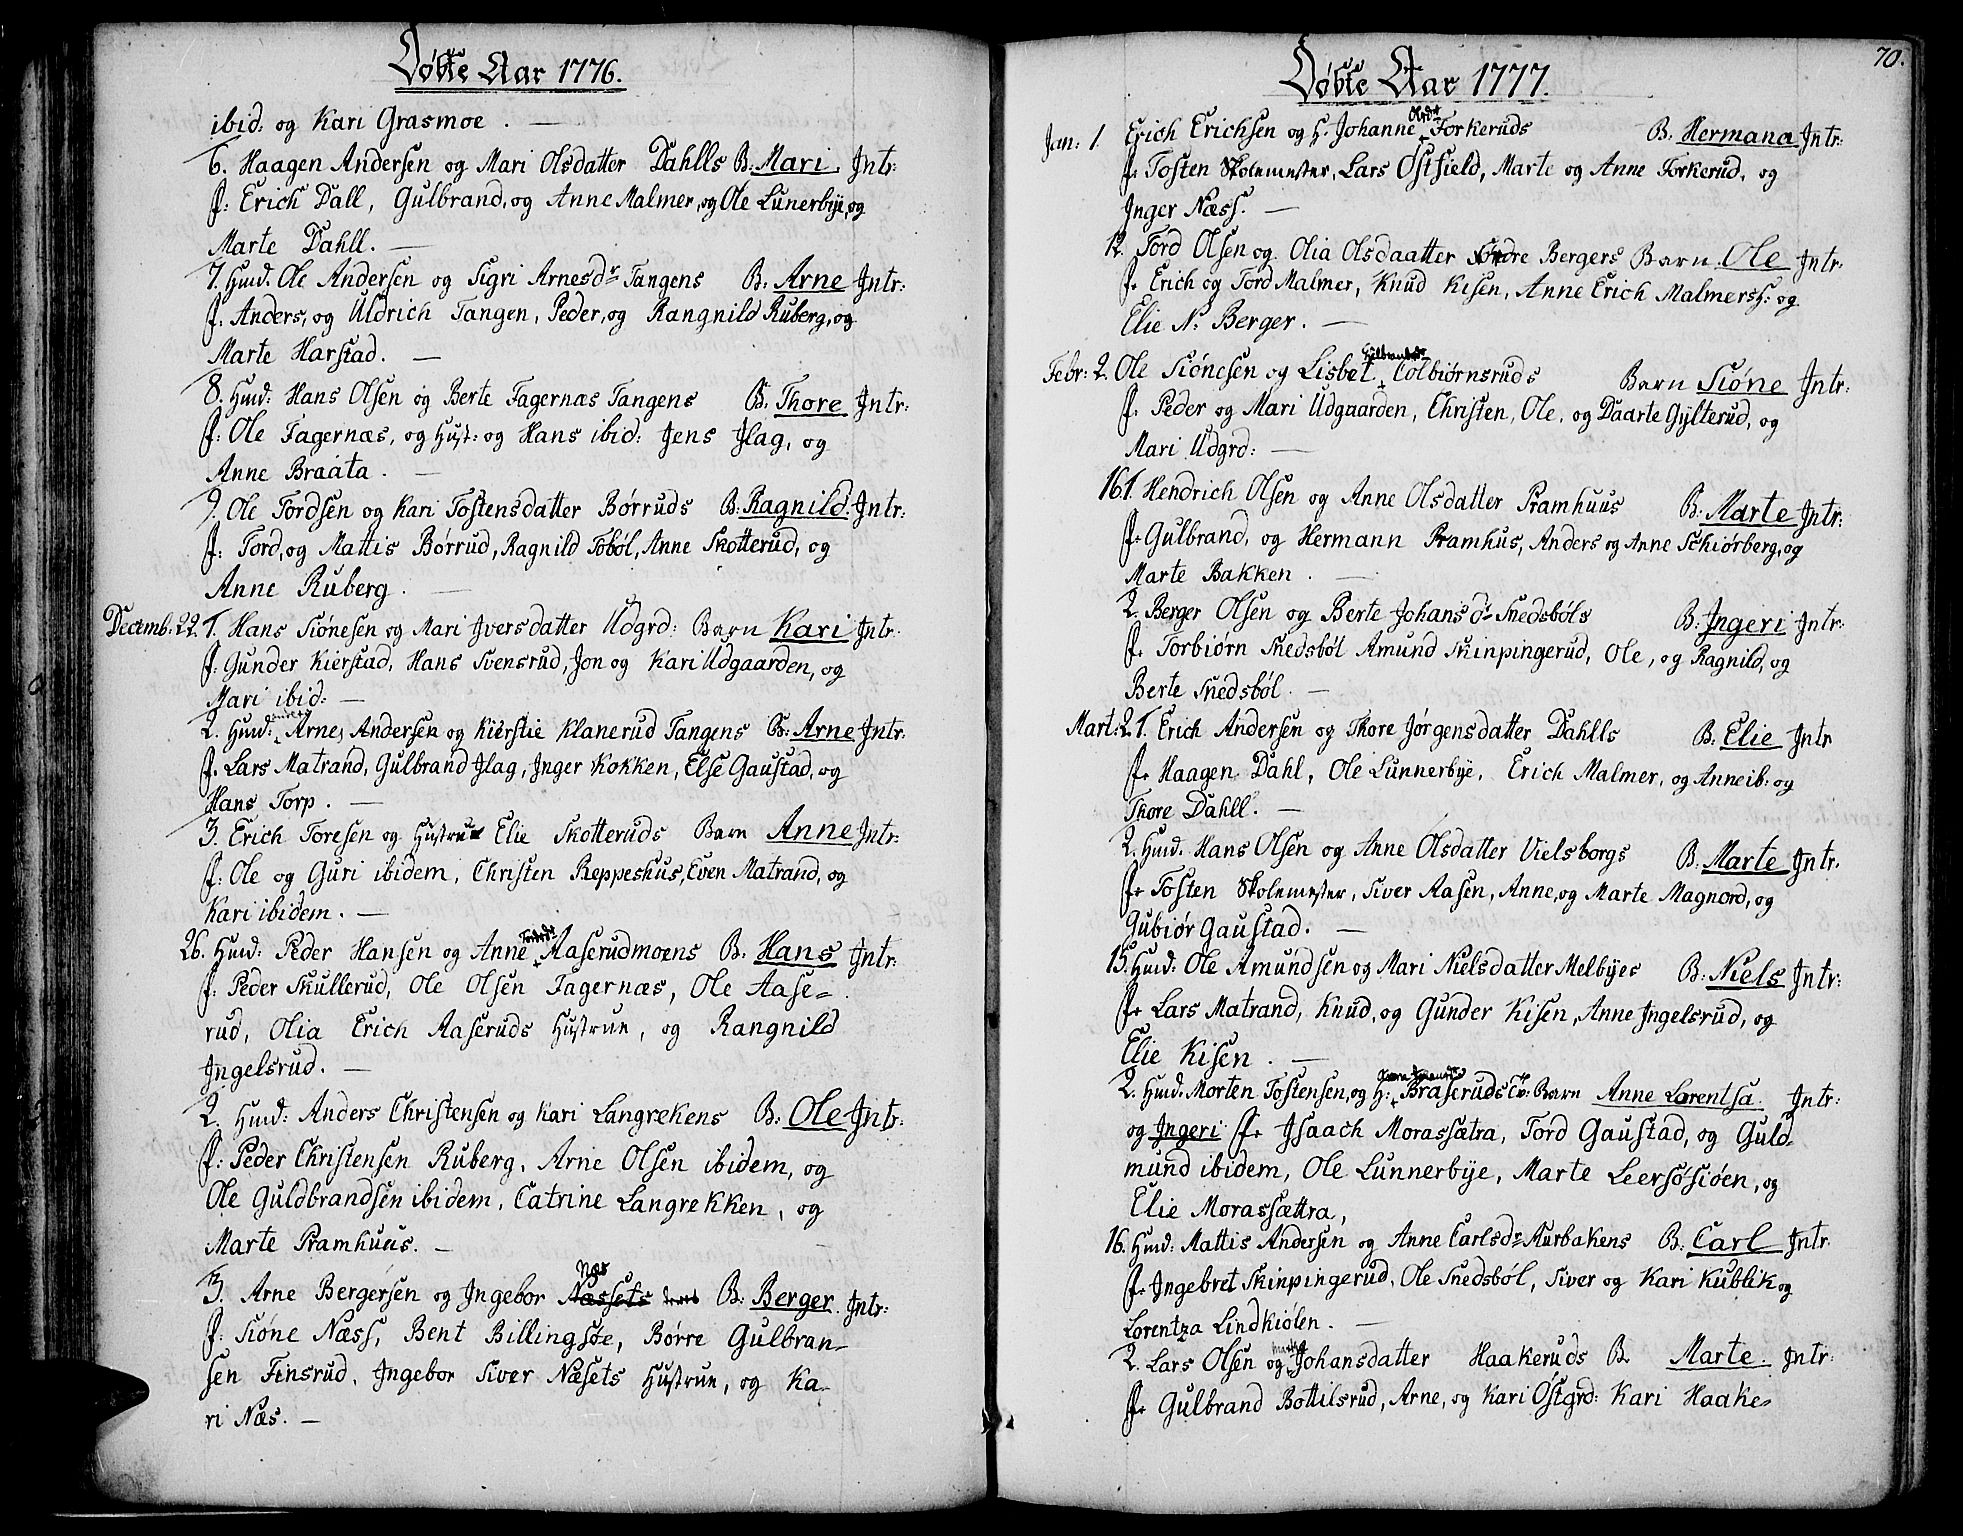 Døbte Aar 1776.
ibid: og Kari Grasmoe. —
6. Haagen Andersen og Mari Olsdatter Dahlls B: Mari, Jntr:
f: Erich Dall, Gulbrand, og Anne Malmer, og Ole Lunerbÿe, og
Marte Dahll. —
7. Huud. Ole Andersen og Sigri Arnesdr Tangens B: Arne Jntr:
f: Anders, og Uldrich Tangen, Peder, og Rangnild Ruberg, og
Marte Harstad. —
8. Huud: Hans Olsen og Berte Fagernæs Tangens B: Thore Jntr:
f: Ole Fagernæs, og Hust: og Hans ibid: Jens Jlag, og
Anne Braata. —
9. Ole Tordsen og Kari Tostensdatter Børruds B: Ragnild. Jntr:
f: Tord, og Mattis Børrud, Ragnild Tobøl, Anne Skotterud, og
Anne Ruberg. —
Decemb: 22. 1. Hans Siønesen og Mari Jversdatter Udgrd: Barn Kari Jntr.
f: Gunder Kierstad, Hans Svensrud, Jon og Kari Udgaarden, og
Mari ibid: —
2. Huud: Arne Andersen og Kierstie Klanerud Tangens B: Arne Jntr:
f: Lars Matrand, Gulbrand Jlag, Jnger Kokken, Else Gaustad, og
Hans Torp. —
3. Erich Toresen og Hustrue Elie Skotteruds Barn Anne Jntr:
f: Ole og Guri ibidem, Christen Reppeshus, Even Matrand, og
Kari ibidem. —
26. Huud: Peder Hansen og Anne Tordsdr Aaserudmoens B: Hans Jntr:
f: Peder Skullerud, Ole Olsen Fagernæs, Ole Aase=
rud, Olia Erich Aaseruds Hustrue, og Rangnild
Jngelsrud. —
2. Huud: Anders Christensen og Kari Langrekens B: Ole Jntr:
f: Peder Christensen Ruberg, Arne Olsen ibidem, og
Ole Guldbrandsen ibidem, Catrine Langrekken, og
Marte Pramhuus. —
3. Arne Bergersen og Jngebor Næssets Næs B: Berger. Jntr:
f: Siøne Næss, Bent Billingsøe, Børre Gulbran-
sen Finsrud, Jngebor Siver Næsets Hustrue, og Ka-
ri Næs. —
70.
Døbte Aar 1777.
Jan: 1. Erich Erichsen og H. Johanne Olsdr Forkeruds B: Hermana Jntr:
f. Tosten Skolemester, Lars Østfield, Marte og Anne Forkerud, og
Jnger Næss. —
12. Tord Olsen og Olia Olsdaatter Søndre Bergers Barn Ole Jntr:
f. Erich og Tord Malmer, Knud Kisen, Anne Erich Malmers H: og
Elie N: Berger. —
Febr: 2. Ole Siønesen og Lisbet Gulbrandsdr Colbiørnsruds Barn Siøne Jntr:
f. Peder og Mari Udgaarden, Christen, Ole, og Daarte Gylterud, og
Mari Udgrd: —
16. 1. Hendrich Olsen og Anne Olsdatter Pramhuus B: Marte Jntr:
f. Gulbrand, og Hermann Pramhus, Anders og Anne Schiørberg, og
Marte Bakken. —
2. Berger Olsen og Berte Johansdr Snedsbøls B: Jngeri Jntr:
f. Torbiørn Snedsbøl Amund Skinpingerud, Ole, og Ragnild, og
Berte Snedsbøl. —
Mart: 2. 1. Erich Andersen og Thore Jørgensdatter Dahlls B: Elie Jntr
f. Haagen Dahl, Ole Lunnerbÿe, Erich Malmer, og Anne ib: og
Thore Dahll. —
2. Huud. Hans Olsen og Anne Olsdatter Vielsborgs B: Marte Jntr.
f. Tosten Skolemester, Siver Aasen, Anne, og Marte Magnord, og
Gubiør Gaustad. —
15. Huud: Ole Amundsen og Mari Nielsdatter Melbÿes B: Niels Jntr:
f. Lars Matrand, Knud, og Gunder Kisen, Anne Jngelsrud, og
Elie Kisen. —
2. Huud. Morten Tostensen, og H: Braseruds Tv: Barn Anne Lorentsa. Jntr:
og Jngeri f. Jsaach Morassætra, Tord Gaustad, og Guld-
mund ibidem, Ole Lunnerbÿe, Marte Leersøsiøen, og
Elie Morassættra,
16. Huud: Mattis Andersen og Anne Carlsdr Aurbakens B: Carl Jntr.
f. Jngebret Skinpingerud, Ole Snedsbøl, Siver og Kari Kublik og
Lorentza Lindkiølen. —
2. Lars Olsen og Marthe Johansdatter Haakeruds B. Marte. Jntr:
f. Gulbrand Bottilsrud, Arne, og Kari Østgrd: Kari Haake=